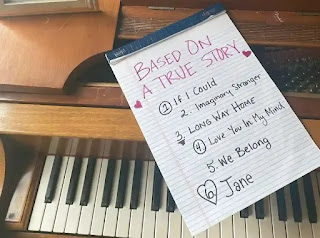 BASED ON
A TRUE STORY
1 If I Could
2. Imaginary Stranger
3. LONG WAY HOME
4 Love You In My Mind
5. We Belong
6 Jane